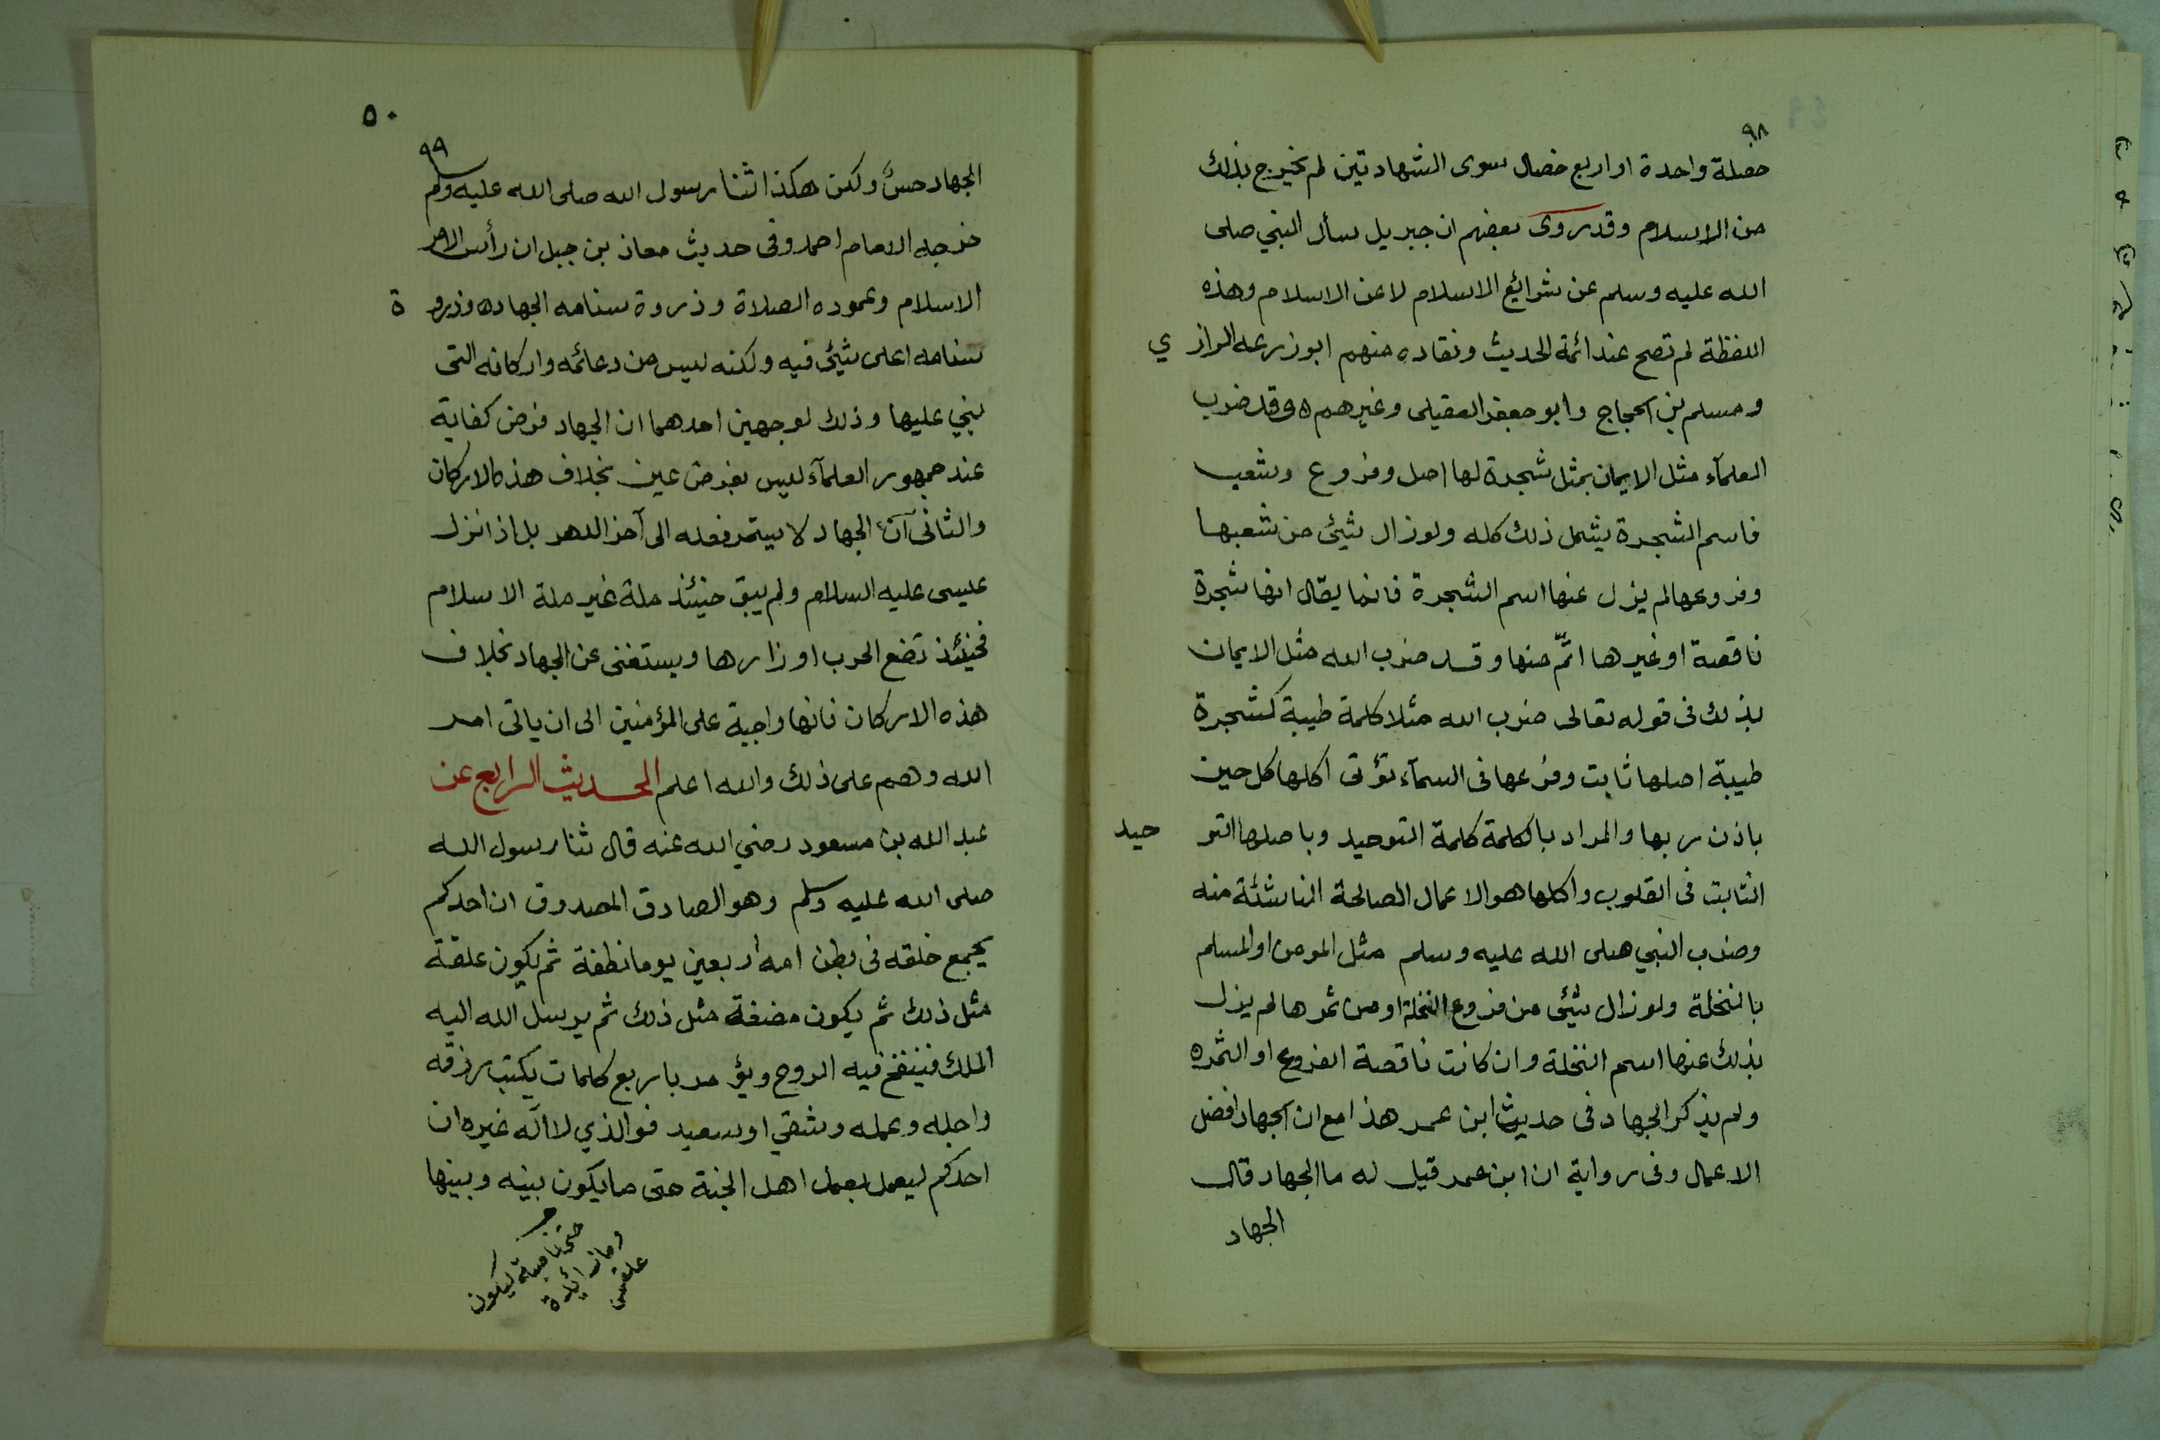 ٩٨
خصلة واحدة او اربع خصال سوى الشهادتين لم يخرج بذلك
من الاسلام وقد روى بعضهم ان جبريل سأل النبي صلى
الله عليه وسلم عن شرائع الاسلام لا عن الاسلام وهذه
اللفظة لم تصح عند ائمة الحديث ونقاده منهم ابو زرعه الرازي
ومسلم بن الحجاج وابو جعفر العقيلى وغيرهم ه وقد ضرب
العلمآء مثل الايمان بمثل شجرة لها اصل وفروع وشعب
فاسم الشجرة يشمل ذلك كله ولو زال شيئ من شعبها
وفروعها لم يزل عنها اسم الشجرة فانما يقال انها شجرة
ناقصة او غيرها اتمّ منها وقد ضرب الله مثل الايمان
بذلك فى قوله تعالى ضرب الله مثلا كلمة طيبة كشجرة
طيبة اصلها ثابت وفرعها فى السمآء تؤتى اكلها كل حين
باذن ربها والمراد بالكلمة كلمة التوحيد وباصلها التوحيد
الثابت فى القلوب واكلها هو الاعمال الصالحة الناشئة منه
وضرب النبي صلى الله عليه وسلم مثل المومن او المسلم
بالنخلة ولو زال شيئى من فروع النخلة او من ثمرها لم يزل
بذلك عنها اسم النخلة وان كانت ناقصة الفروع او الثمره
ولم يذكر الجهاد فى حديث ابن عمر هذا مع ان الجهاد افضل
الاعمال وفى رواية ان ابن عمر قيل له ما الجهاد قال
الجهاد
٥٠
٩٩
الجهاد حسنٌ ولكن هكذا ثنا رسول الله صلى الله عليه وسلم
خرجه الامام احمد وفى حديث معاذ بن جبل ان رأس الامر
الاسلام وعموده الصلاة وذروة سنامه الجهاد ه وذروة
سنامه اعلى شيئ فيه ولكنه ليس من دعائمه واركانه التى
بني عليها وذلك لوجهين احدهما ان الجهاد فرض كفاية
عند جمهور العلمآء ليس بفرض عين بخلاف هذه الاركان
والثانى آن الجهاد لا يستمر فعله الى آخر الدهر بل اذا نزل
عليسى عليه السلام ولم يبق حينئذ ملة غير ملة الاسلام
فحينئذ تضع الحرب اوزارها ويستغنى عن الجهاد بخلاف
هذه الاركان فانها واجبة على المؤمنين الى ان ياتى امر
الله وهم على ذلك والله اعلم الحديث الرابع عن
عبد الله بن مسعود رضي الله عنه قال ثنا رسول الله
صلى الله عليه وسلم وهو الصادق المصدوق ان احدكم
يجمع خلقه فى بطن امه اربعين يوما نطفة ثم يكون علقة
مثل ذلك ثم يكون مضغة مثل ذلك ثم يرسل الله اليه
الملك فينفخ فيه الروح ويؤمر باربع كلمات يكتب رزقه
واجله وعمله وشقي او سعيد فو الذي لا آله غيره ان
احدكم ليعمل بعمل اهل الجنة حتى ما يكون بينه وبينها